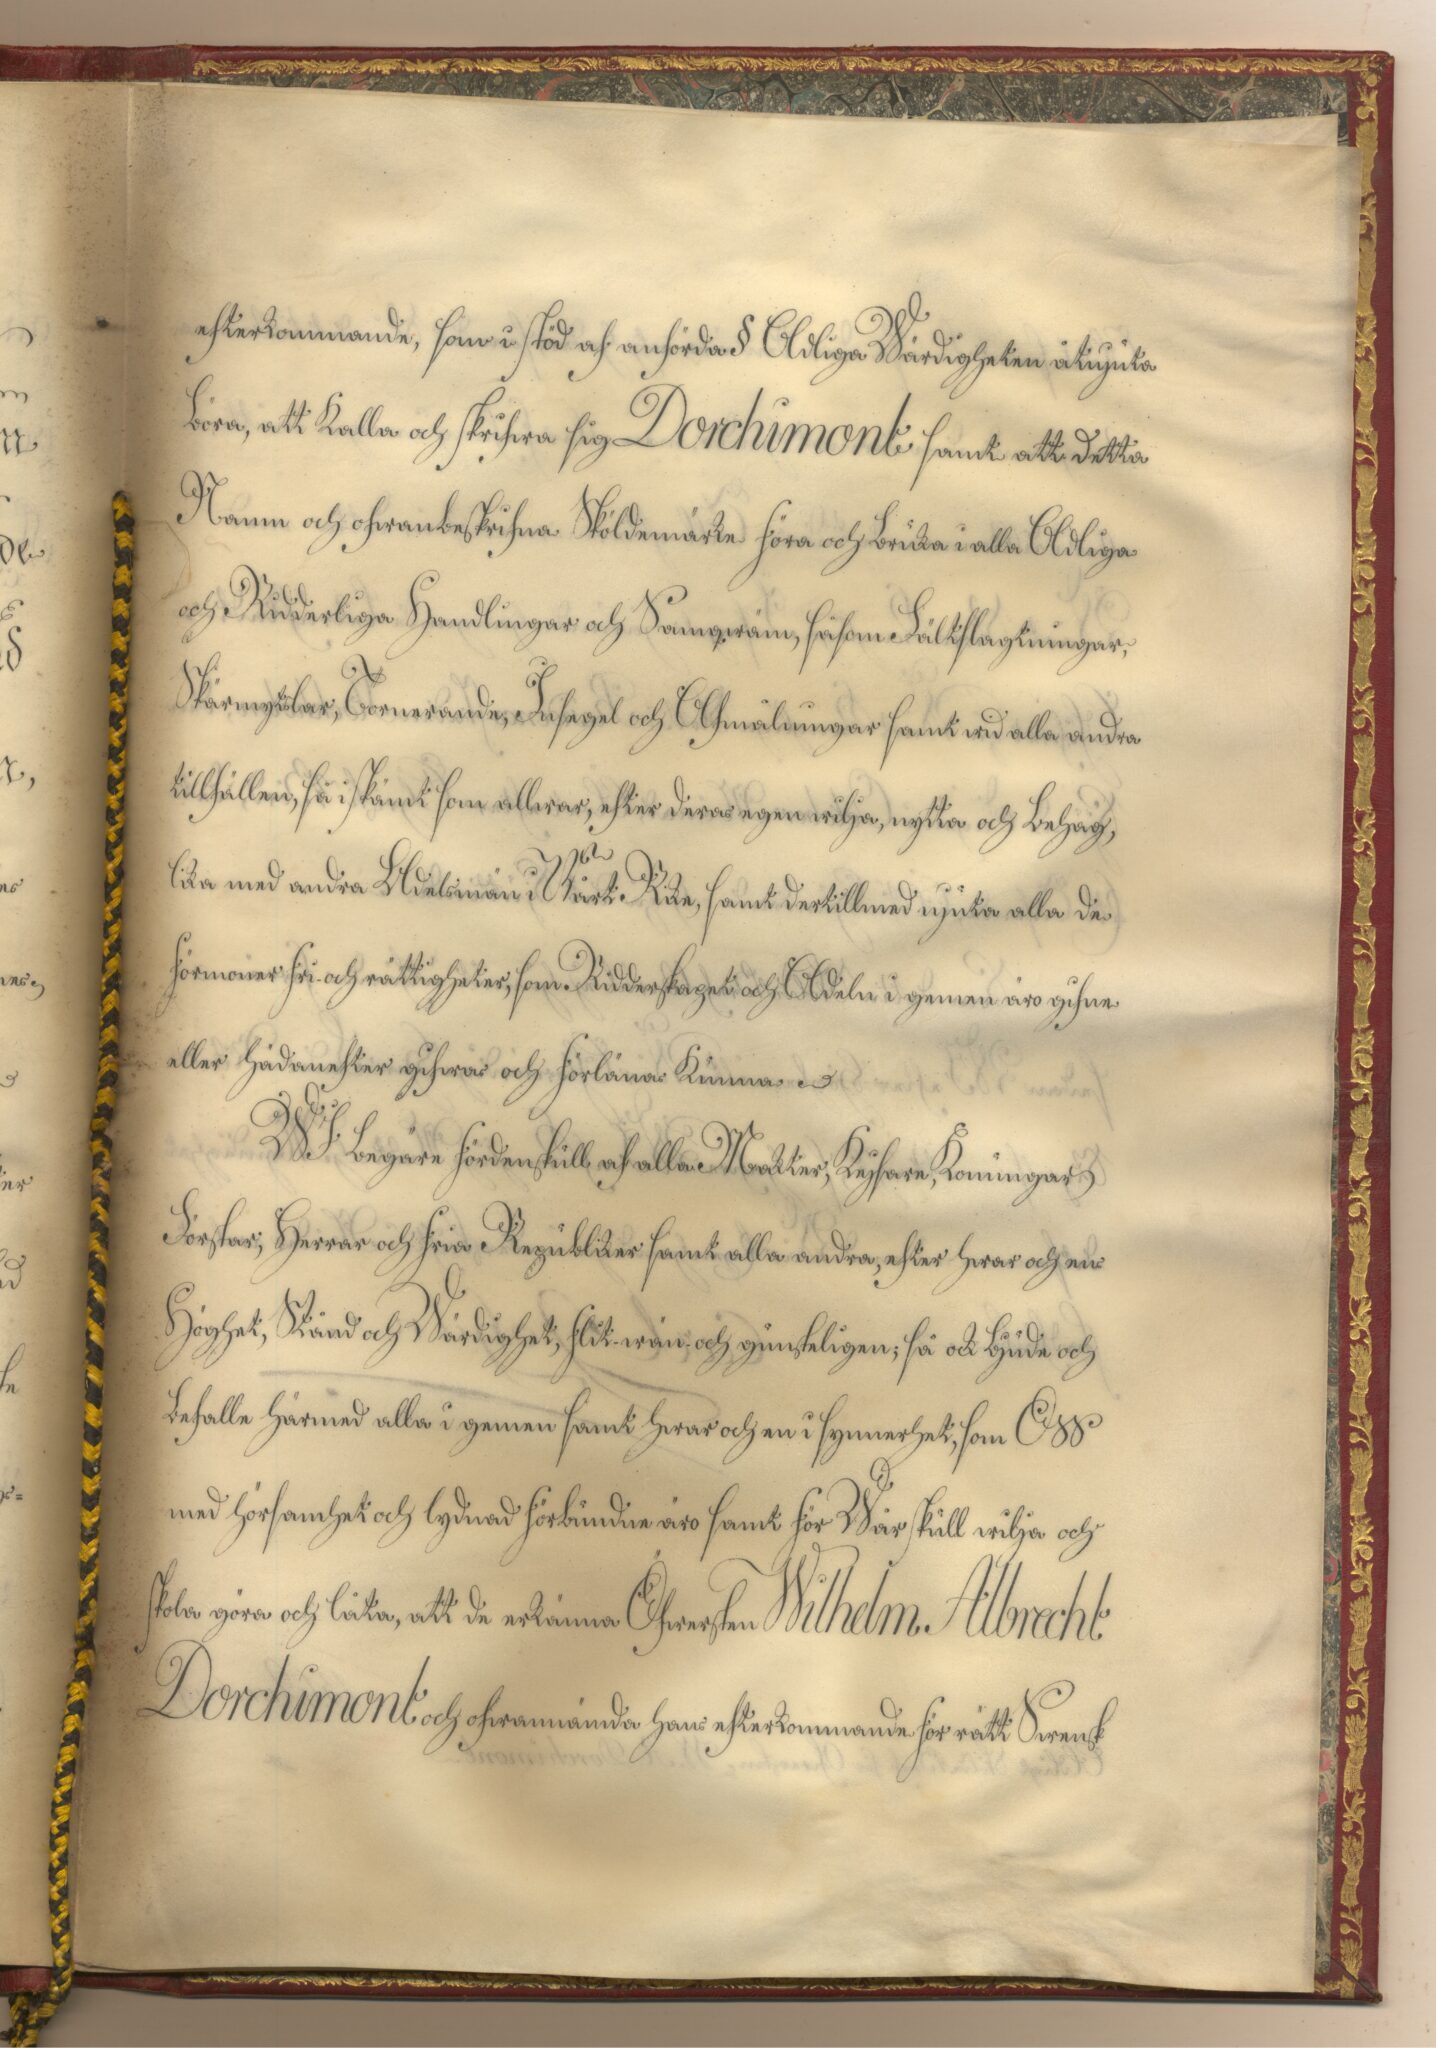 efterkommande, som i stöd af anförda § Adliga Wärdigheten åtnjuta
böra, att kalla och skrifwa sig Dorchimont samt att detta
Namn och ofwanbeskrifna Sköldemärke föra och bruka i alla Adliga
och Ridderliga Handlingar och Samqwäm, såsom Fältslagtningar,
Skärmytslar, Tornerande, Insegel och Afmålningar samt wid alla andra
tillfällen, så i skämt som allwar, efter deras egen wilja, nytta och behag,
lika med andra Adelsmän i Wårt Rike, samt dertillmed njuta alla de
förmoner fri- och rättigheter, som Ridderskapet och Adeln i gemen äro gifne
eller hädanefter gifwas och förlänas kunna.
Wi begäre fördenskull af alla Makter, Keysare, Konungar
Förstar, Herrar och fria Republiker samt alla andra, efter hwar och ens
Höghet, Stånd och Wärdighet, flit- wän- och gunsteligen; så ock bjude och
befalle härmed alla i gemen samt hwar och en i synnerhet, som Oss
med hörsamhet och lydnad förbundne äro samt för Wår skull wilja och
skola göra och låta, att de erkänna Öfwersten Wilhelm Albrecht
Dorchimont och ofwannämda hans efterkommande för rätt Swensk